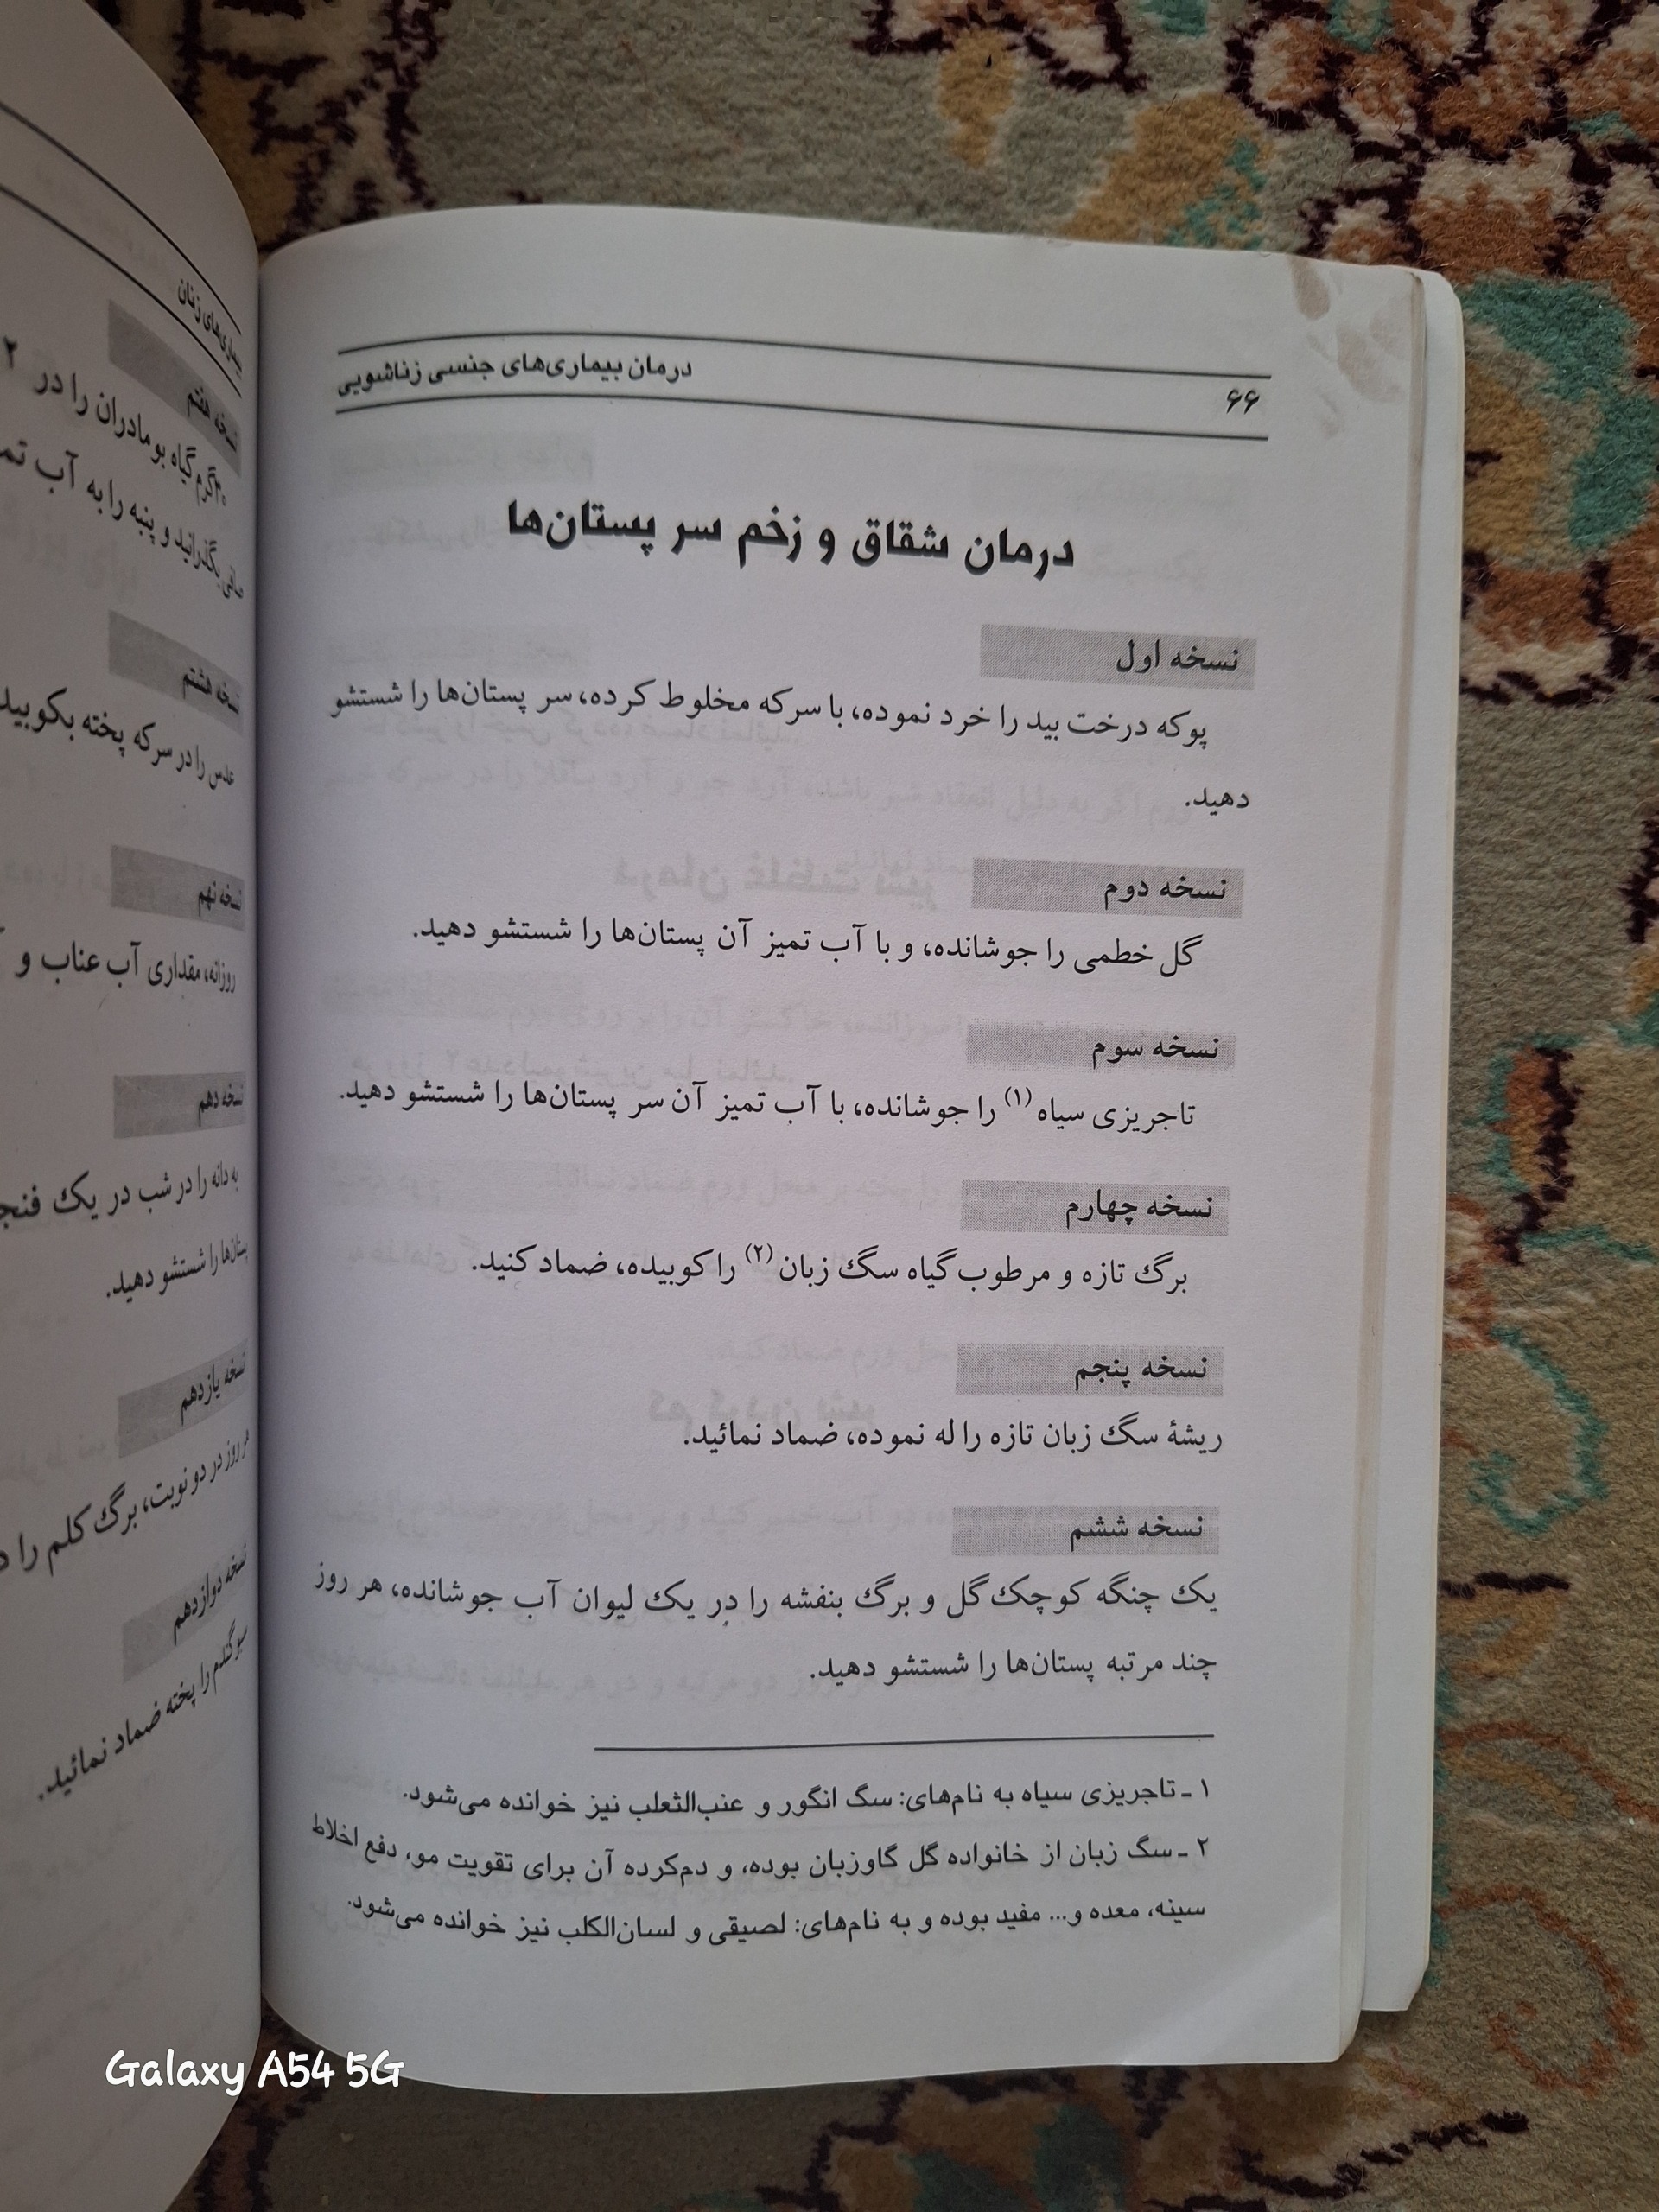 ۶۶
درمان بیماری‌های جنسی زناشویی
درمان شقاق و زخم سر پستان‌ها
نسخه اول
پوکه درخت بید را خرد نموده، با سرکه مخلوط کرده، سر پستان‌ها را شستشو
دهید.
نسخه دوم
گل خطمی را جوشانده، و با آب تمیز آن پستان‌ها را شستشو دهید.
نسخه سوم
تاجریزی سیاه(۱) را جوشانده، با آب تمیز آن سر پستان‌ها را شستشو دهید.
نسخه چهارم
برگ تازه و مرطوب گیاه سگ زبان(۲) را کوبیده، ضماد کنید.
نسخه پنجم
ریشهٔ سگ زبان تازه را له نموده، ضماد نمائید.
نسخه ششم
یک چنگه کوچک گل و برگ بنفشه را در یک لیوان آب جوشانده، هر روز
چند مرتبه پستان‌ها را شستشو دهید.
۱ ـ تاجریزی سیاه به نام‌های: سگ انگور و عنب‌الثعلب نیز خوانده می‌شود.
۲ ـ سگ زبان از خانواده گل گاوزبان بوده، و دم‌کرده آن برای تقویت مو، دفع اخلاط
سینه، معده و... مفید بوده و به نام‌های: لصیقی و لسان‌الکلب نیز خوانده می‌شود.
بیماری‌های زنان
نسخه هفتم
گرم گیاه بومادران را در ۲
بگذرانید و پنبه را به آب
نسخه هشتم
عدس را در سرکه پخته بکوبید
نسخه نهم
روزانه، مقداری آب عناب و
نسخه دهم
به دانه را در شب در یک
پستان‌ها را شستشو دهید.
نسخه یازدهم
هر روز در دو نوبت، برگ کلم را
نسخه دوازدهم
را پخته ضماد نمائید.
Galaxy A54 5G